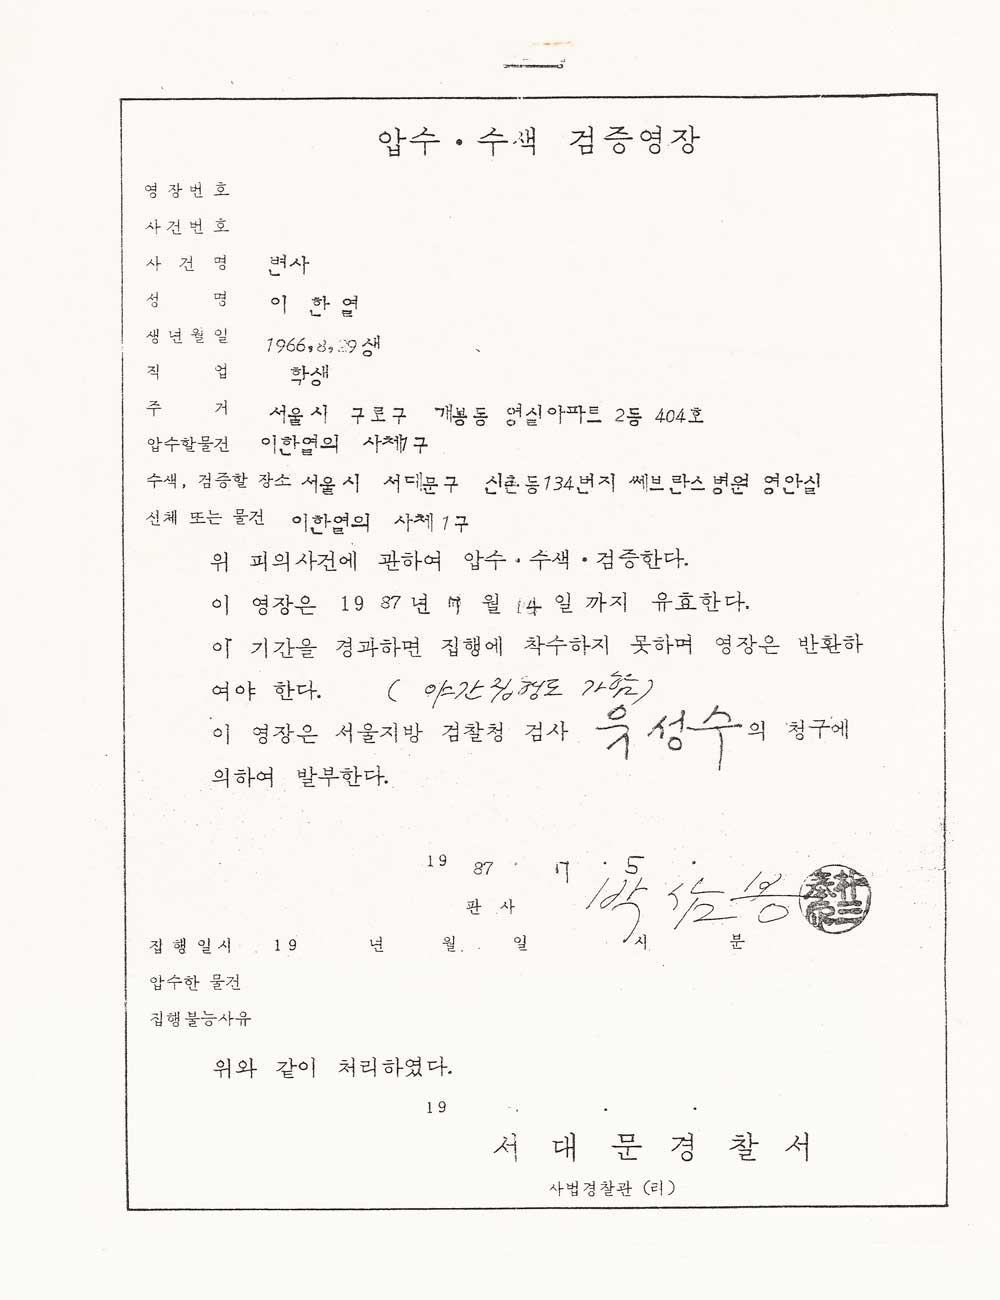 압수·수색 검증영장
영장번호
사건번호
사건명 변사
성명 이 한 열
생년월일 1966,8,29생
직업 학생
주거 서울시 구로구 개봉동 영실아파트 2동 404호
압수할물건 이한열의 사체1구
수색, 검증할 장소 서울시 서대문구 신촌동134번지 쎄브란스병원 영안실
신체 또는 물건 이한열의 사체 1구
위 피의사건에 관하여 압수·수색·검증한다.
이 영장은 19 87년 7 월 14 일 까지 유효한다.
이 기간을 경과하면 집행에 착수하지 못하며 영장은 반환하
여야 한다. ( 야간집행도 가함)
이 영장은 서울지방 검찰청 검사 성수의 청구에
의하여 발부한다.
19 87 . 7 . 5 .
판사 박삼봉
집행일시 19 년 월 일 시 분
압수한 물건
집행불능사유
위와 같이 처리하였다.
19 . . .
서대문경찰서
사법경찰관 (리)